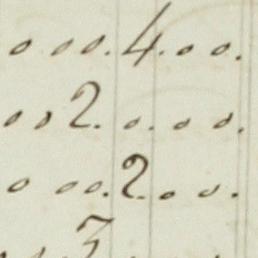 o . o o . 4 . o o .
o o 2 . o . o o .
o o o . 2 . o o .
3